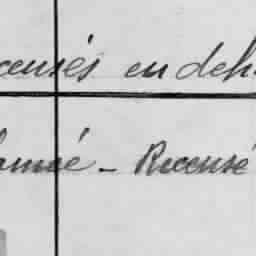 censés en deh
amé - Recensé